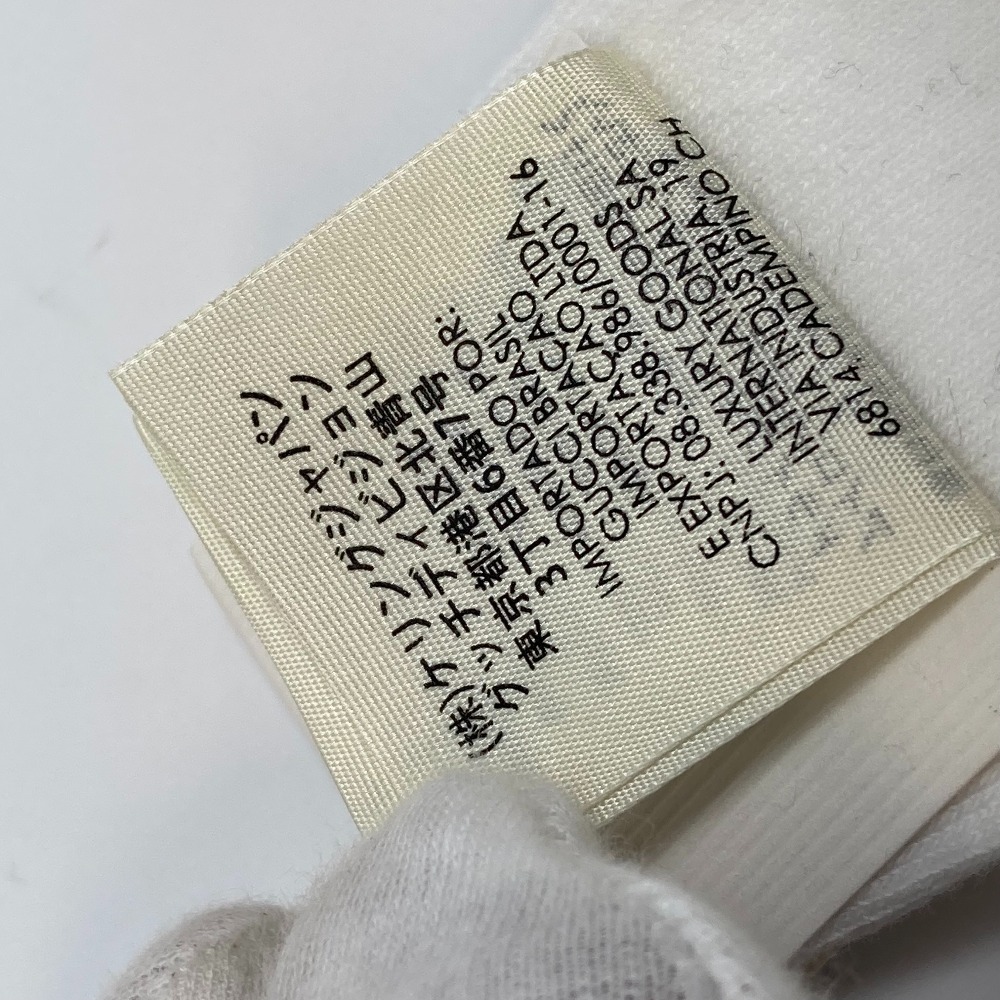 (株)ケリングジャパン
グッチ ディビジョン
東京都港区北青山
3丁目6番7号
IMPORTIADO POR:
GUCCI BRASIL
IMPORTACAO LTDA
E EXPORTACAO
CNPJ: 08.338.986/0001-16
LUXURY GOODS
INTERNATIONAL SA
VIA INDUSTRIA 19
6814, CADEMPINO CH